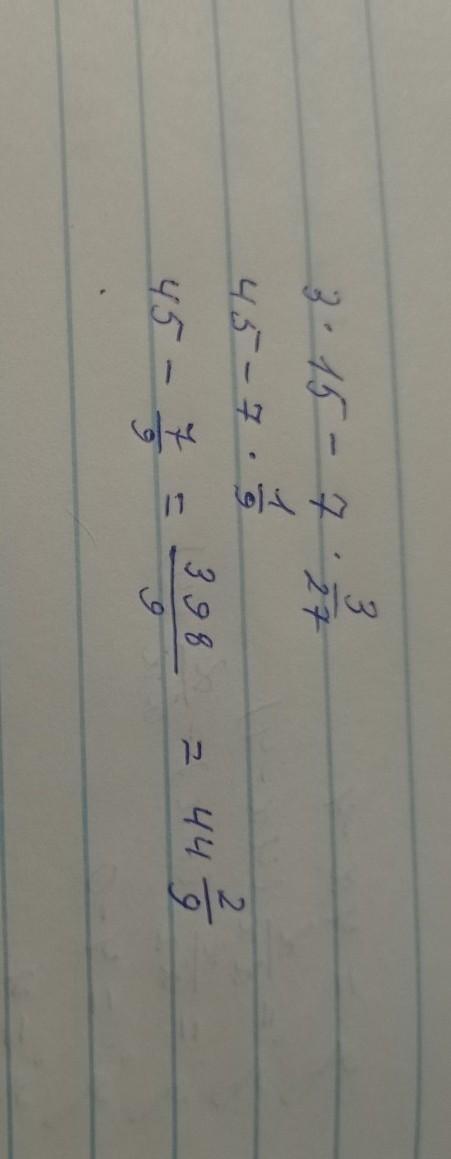 3 · 15 - 7 · 3/27
45 - 7 · 1/9
45 - 7/9 = 398/9 = 44 2/9